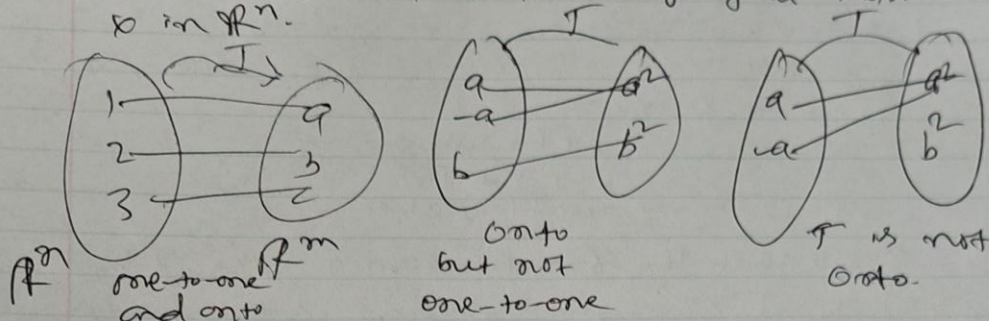 x in ℝⁿ.
T
1 a
2 b
3 c
ℝⁿ ℝᵐ
one-to-one
and onto
T
a a²
-a
b b²
onto
but not
one-to-one
T
a a²
-a b²
T is not
onto.